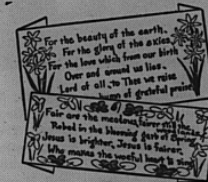 For the beauty of the earth.
For the glory of the skies,
For the love which from our birth
Over and around us lies.
Lord of all, to Thee we raise
hymn of grateful praise
Fair are the meadows,
Robed in the blooming garb of
Jesus is brighter, Jesus is fairer,
Who makes the woeful heart to sing